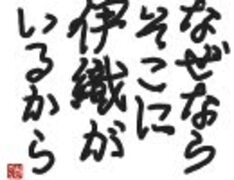 なぜなら
そこに
伊織が
いるから